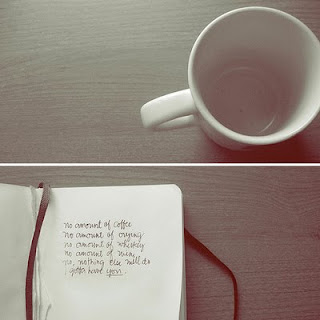 no amount of coffee
no amount of crying
no amount of whiskey
no amount of wine
no, nothing else will do
I gotta have you.